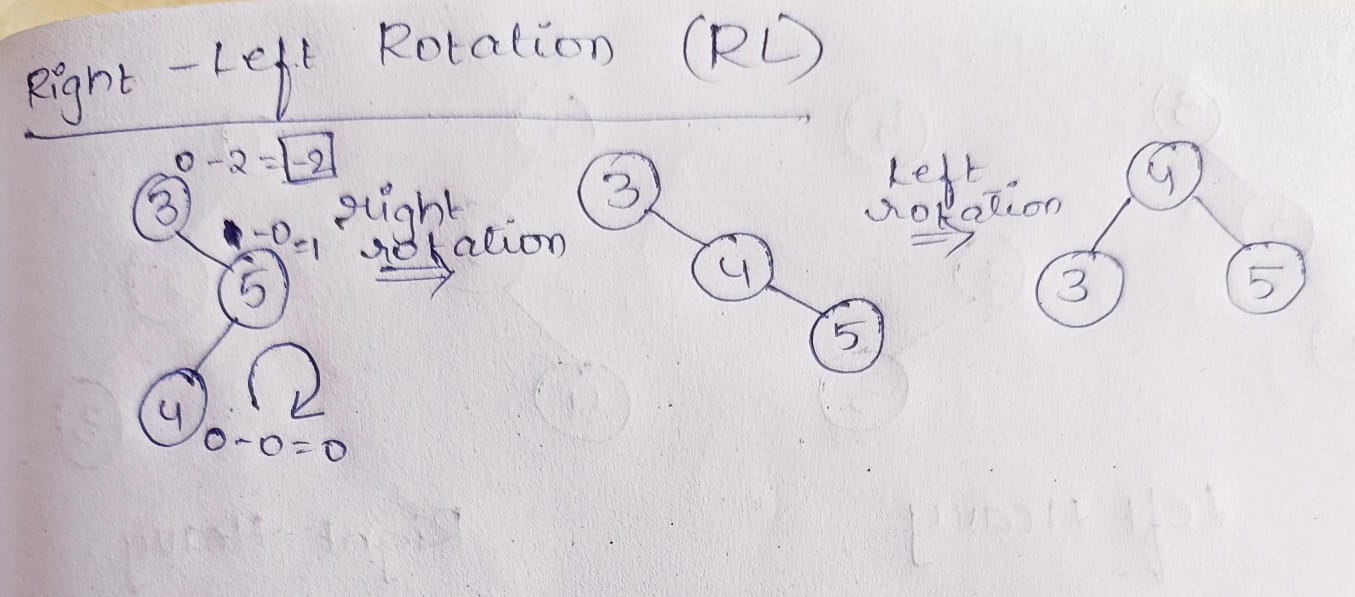 Right-Left Rotation (RL)
0-2=-2
3
1-0=1
5
4
0-0=0
right
rotation
3
4
5
Left
rotation
4
3
5